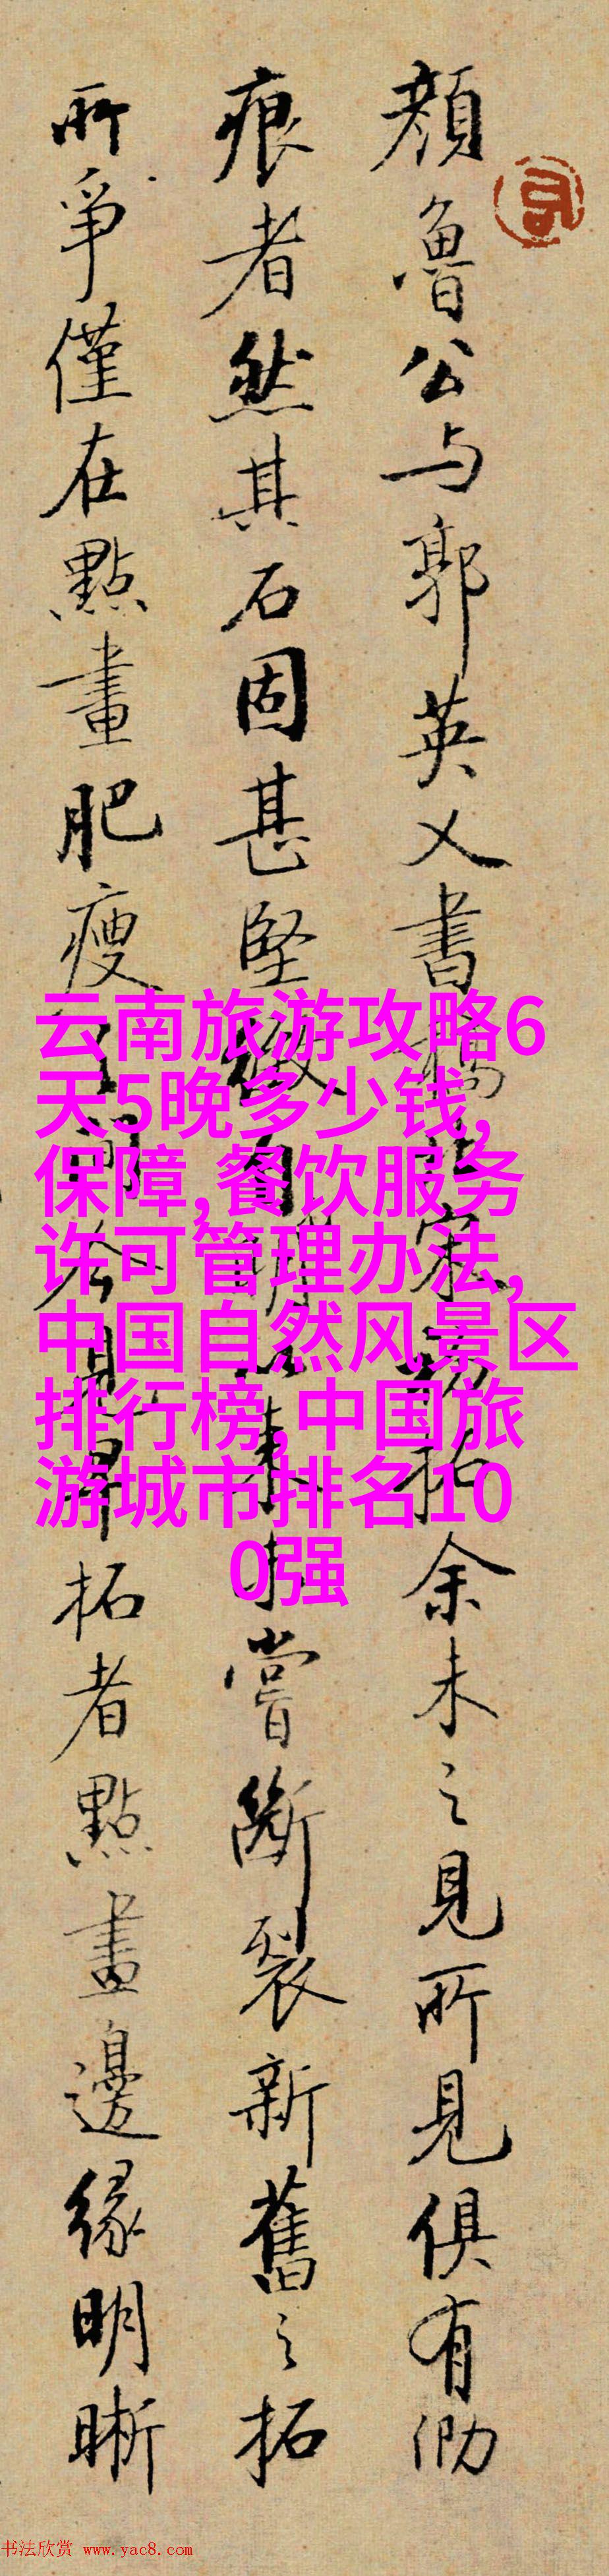 顔魯公与郭英乂書稿宋初拓余未之見所見俱有泐
痕者然其石固甚堅緻自以來未嘗斷裂新舊之拓
所爭僅在點畫肥瘦間早拓者點畫邊緣明晰
云南旅游攻略6
天5晚多少钱,
保障,餐饮服务
许可管理办法,
中国自然风景区
排行榜,中国旅
游城市排名10
0强
书法欣赏 www.yac8.com